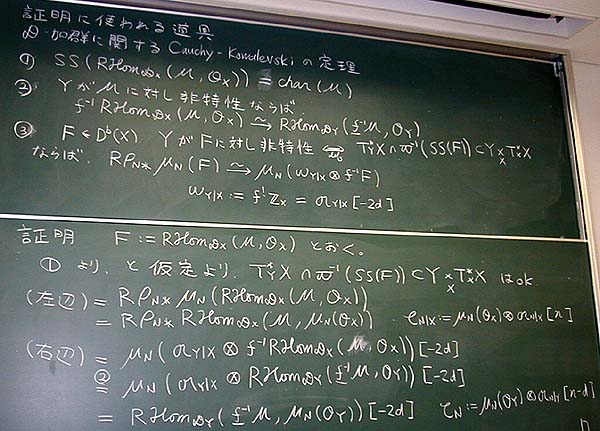 証明に使われる道具
𝒟-加群に関する Cauchy-Kowalevski の定理
① SS(RHom𝒟x(M, Ox)) = char(M)
② YがMに対し非特性ならば
f⁻¹RHom𝒟x(M, Ox) ⥲ RHom𝒟Y(f⁻¹M, OY)
③ F ∈ Dᵇ(X). YがFに対し非特性 ⟺ T*YX ∩ ϖ⁻¹(SS(F)) ⊂ Y×X T*XX
ならば. RρN* μN(F) ⥲ μN(ωY|X ⊗ f⁻¹F)
ωY|X := f!ℤX = orY|X[-2d]
証明 F := RHom𝒟x(M, Ox) とおく。
① より、と仮定より. T*YX ∩ ϖ⁻¹(SS(F)) ⊂ Y×X T*XX はok
(左辺) = RρN* μN(RHom𝒟x(M, Ox))
= RρN* RHom𝒟x(M, μN(Ox)) 𝒞N|X := μN(Ox) ⊗ orN|X[n]
(右辺) = μN(orY|X ⊗ f⁻¹RHom𝒟x(M, Ox))[-2d]
② = μN(orY|X ⊗ RHom𝒟Y(f⁻¹M, OY))[-2d]
= RHom𝒟Y(f⁻¹M, μN(OY))[-2d] 𝒞N := μN(OY) ⊗ orN|Y[n-d]